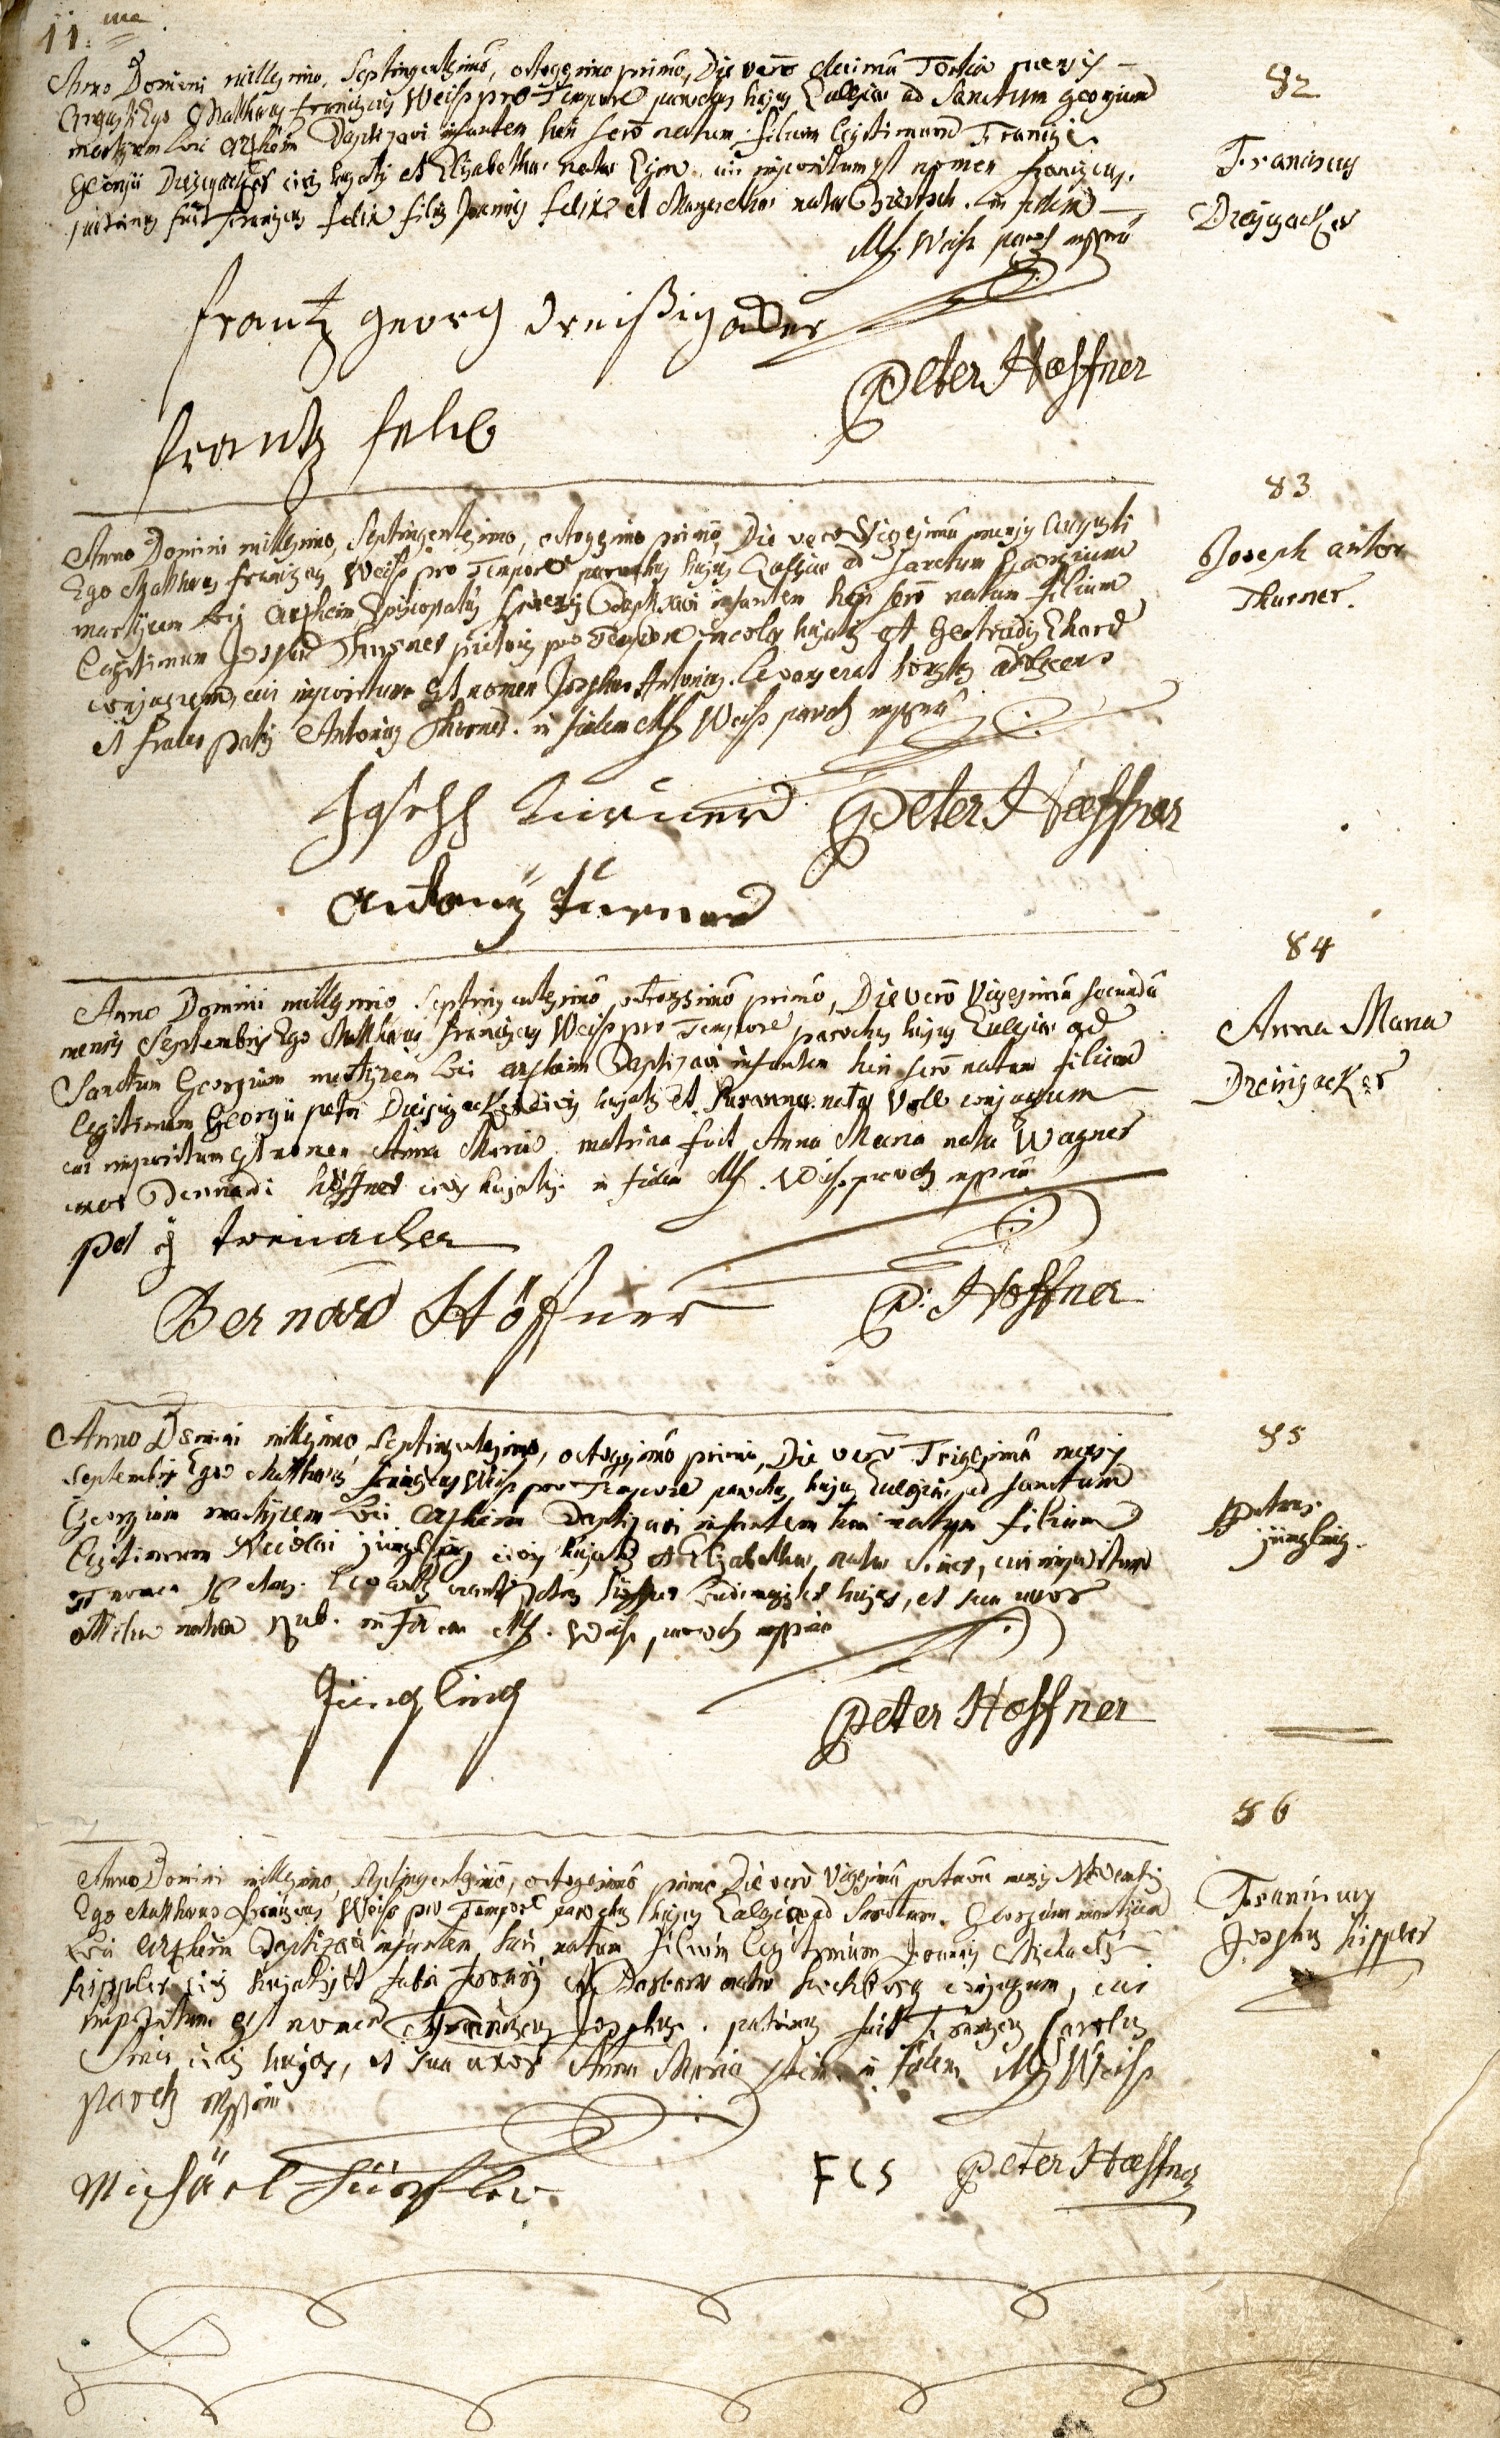 11.ma
Anno Domini millesimo, Septingentesimo, octogesimo primo, Die vero decima Tertia mensis
Augusti Ego Mathaeus franciscus Weiss pro Tempore parochus hujus Ecclesiae ad Sanctum georgium
martyrem loci arzheim Baptizavi infantem heri sero natum filium legitimum Francisci
Georgii Dreisigacker civis hujatis et Elizabethae natae cui impositum est nomen franciscus.
patrinus fuit franciscus felix filius Joannis felix et Margarethae natae in fidem
M. Weiss paroch mppria
82
Franciscus
Dreisgacker
frantz georg dreißigacker
Peter Hoeffner
frantz felix
83
Joseph anton
Thurner.
Anno Domini millesimo, Septingentesimo, octogesimo primo, Die vero Vigesima mensis Augusti
Ego Mathaeus franciscus Weiss pro Tempore parochus hujus Ecclesiae ad sanctum Georgium
martyrem loci arzheim Episcopatus Baptizavi infantem heri sero natum filium
legitimum Josephi Thurner pro Tempore incolae hujatis et Gertrudis Ehard
conjugum, cui impositum est nomen Josephus Antonius. levans erat
et frater patris Antonius Thurner. in fidem M. Weiss paroch mppria
Joseph Turner Peter Hoeffner
Antoni Turner
84
Anna Maria
Dreisigacker
Anno Domini millesimo Septingentesimo octogesimo primo, Die vero Vigesima secunda
mensis Septembris Ego Matthaeus franciscus Weiss pro Tempore parochus hujus Ecclesiae ad
Sanctum Georgium martyrem loci arzheim Baptizavi infantem heri sero natam filiam
legitimam Georgii petri Dreisigacker civis hujatis et Susannae natae Voll conjugum
cui impositum est nomen Anna Maria. matrina fuit Anna Maria nata Wagner
uxor Bernardi höffner civis hujatis in fidem M. Weiss paroch mppria
Bernard Höffner P: Hoeffner
85
Petrus
jüngling.
Anno Domini millesimo Septingentesimo, octogesimo primo, Die vero Trigesima mensis
Septembris Ego Matthaeus franciscus Weiss pro Tempore parochus hujus Ecclesiae ad sanctum
Georgium martyrem loci arzheim Baptizavi infantem heri natum filium
legitimum Nicolai jüngling civis hujatis et Elizabethae, natae cui impositum
est nomen Petrus. levantes erant petrus höffner ludimagister hujas, et sua uxor
ottilia nata in fidem M. Weiss, paroch mppria
Jüngling
Peter Hoeffner
86
Franciscus
Josephus hippler
Anno Domini millesimo, Septingentesimo, octogesimo primo Die vero Vigesima octava mensis Novembris
Ego Matthaeus franciscus Weiss pro Tempore parochus hujus Ecclesiae ad Sanctum Georgium martyrem
loci arzheim Baptizavi infantem heri natum filium legitimum Joannis Michaelis
hippler civis hujatis et Barbarae natae conjugum, cui
impositum est nomen Franciscus Josephus. patrinus fuit Franciscus Carolus
civis hujas, et sua uxor Anna Maria in fidem M. Weiss
paroch mppria
Michäel
FCS Peter Hoeffner